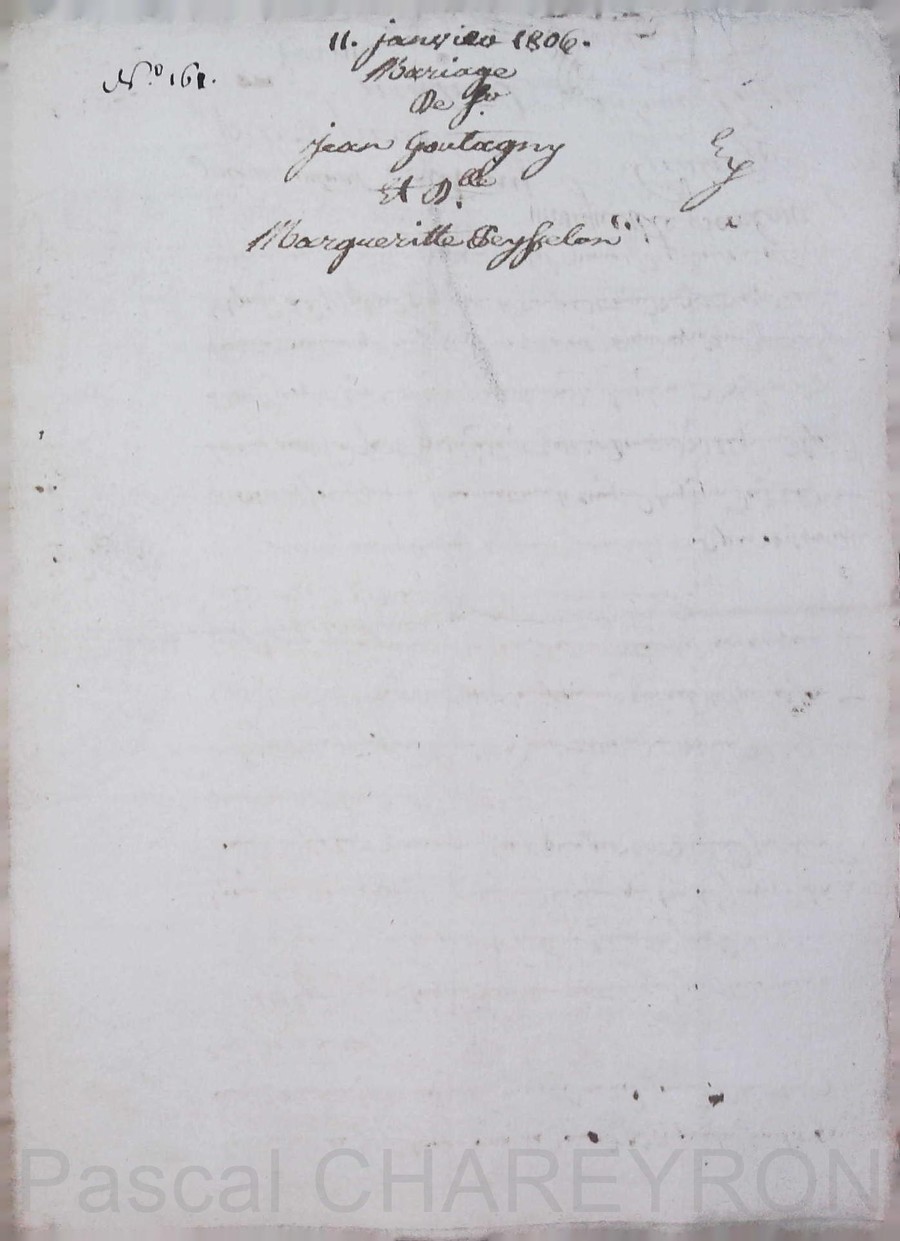 11. janvier 1806.
N.º 161.
Mariage
De Sr
Jean Goutagny
Et D.lle
Margueritte Teysselon
Pascal CHAREYRON